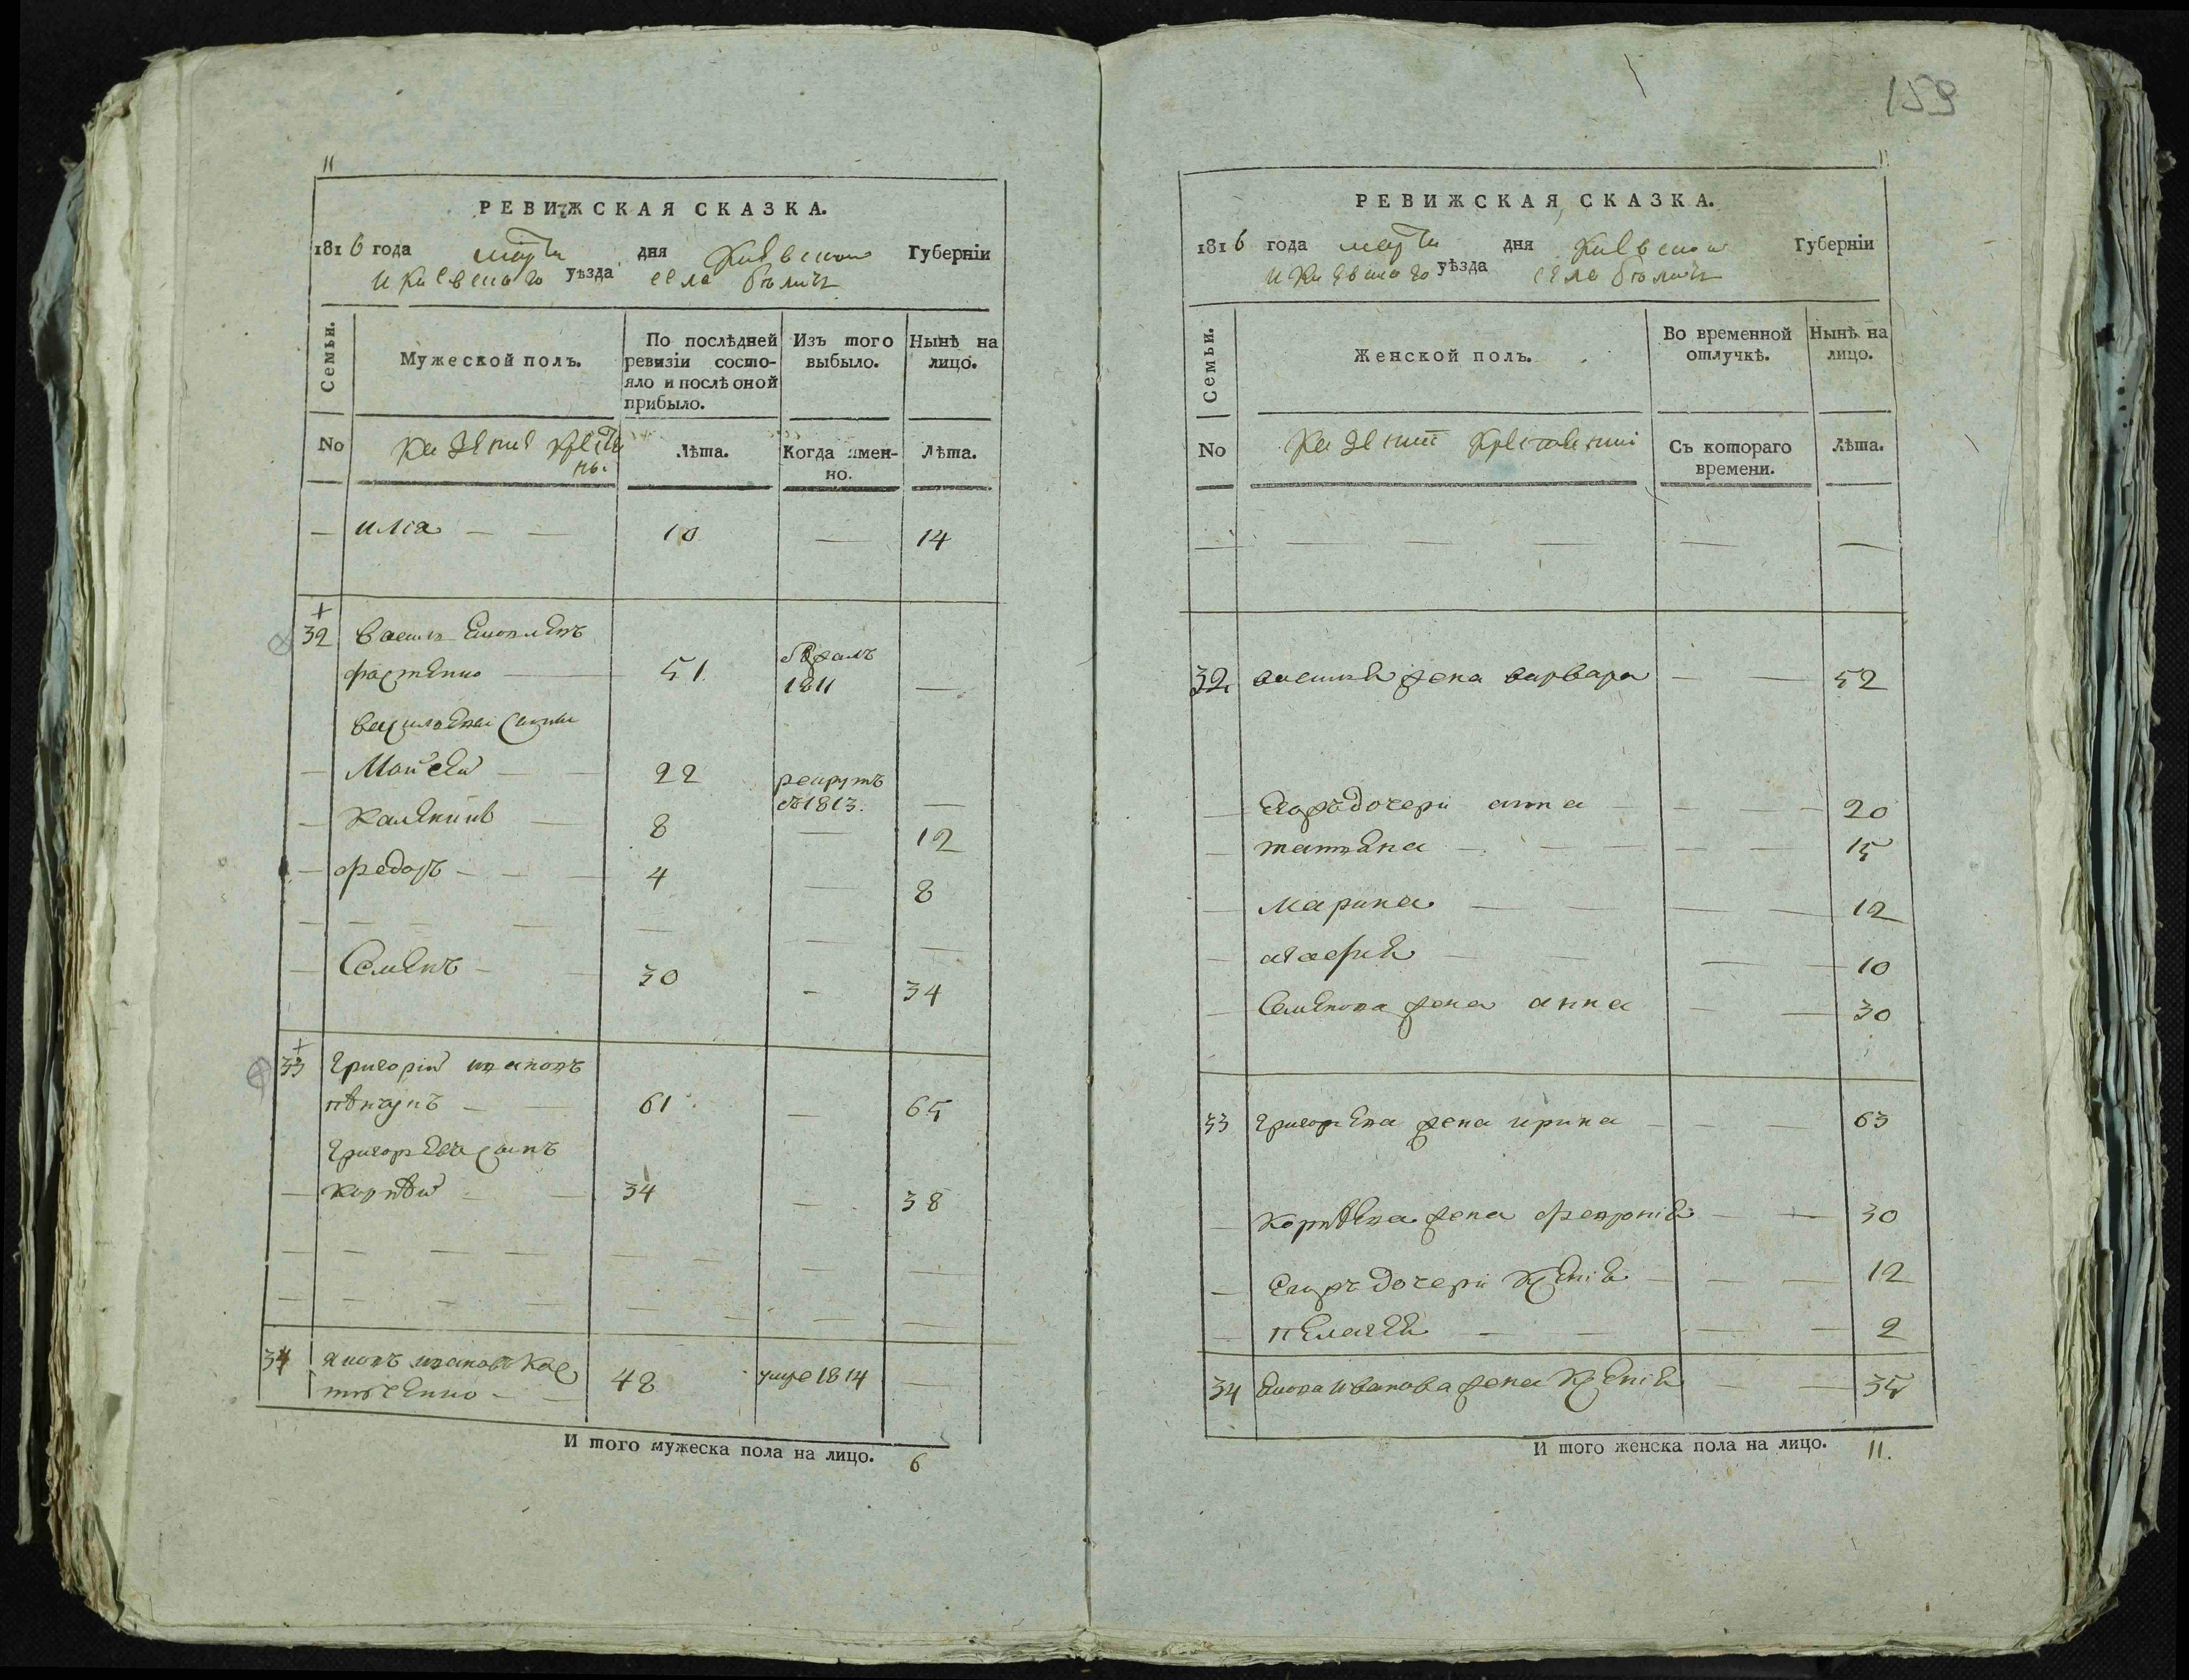 11
РЕВИЖСКАЯ СКАЗКА.
1816 года марта дня Киевской Губерніи
и Киевскаго уѣзда села
Семьи.
Мужеской полъ.
По послѣдней ревизіи состо-
яло и послѣ оной
прибыло.
Изъ того
выбыло.
Нынѣ на
лицо.
No
Казенніе
Лѣта.
Когда имен-
но.
Лѣта.
— илія — — 10 — 14
32
51 1811 —
— Моисей — — 22 рекрутъ
въ 1813. —
— 8 — 12
— федоръ — — — 4 — 8
— — — — — — —
— Семенъ — 30 — 34
33 Григорій ивановъ
61 — 65
Григорьевъ сынъ
— корнѣй — — 34 — 38
— — — — — — — —
— — — — — — — —
34 яковъ ивановъ Кос
тюченко — — 48 умре 1814 —
И того мужеска пола на лицо. 6
159
11
РЕВИЖСКАЯ СКАЗКА.
1816 года марта дня Киевской Губерніи
и Киевскаго уѣзда села
Семьи.
Женской полъ.
Во временной
отлучкѣ.
Нынѣ на
лицо.
No
Казенній
Съ котораго
времени.
Лѣта.
— — — — — —
32 жена варвара — — 52
— дочери анна — — — 20
— татяна — — — — — 15
— Марина — — — — 12
— агафия — — — — 10
— Семенова жена анна — — 30
33 Григорьева жена ирина — — — 63
— Корнѣева жена февронія — — 30
— дочери Ксенія — — — 12
— пелагея — — — — 2
34 Якова иванова жена Ксенія — — 35
И того женска пола на лицо. 11.